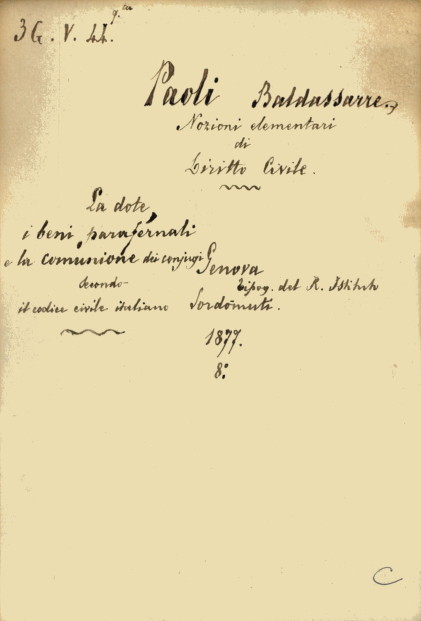 3 G. V. 44.
Paoli Baldassarre.
Nozioni elementari
di
Diritto Civile.
La dote,
i beni parafernali
e la comunione dei conjugi
secondo
il codice civile italiano
Genova
Tipog. del R. Istituto
Sordomuti.
1877.
8.°
C